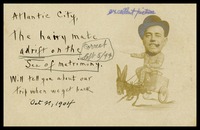 excellent picture
Atlantic City,
The hairy mate
adrift on the
Sea of matrimony.
Will tell you about our
trip when we get back
Oct 21, 1904